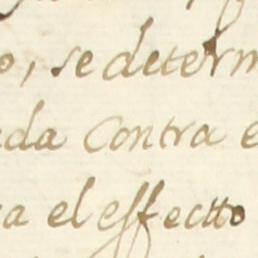 o, se determ
da contra e
a el effectto